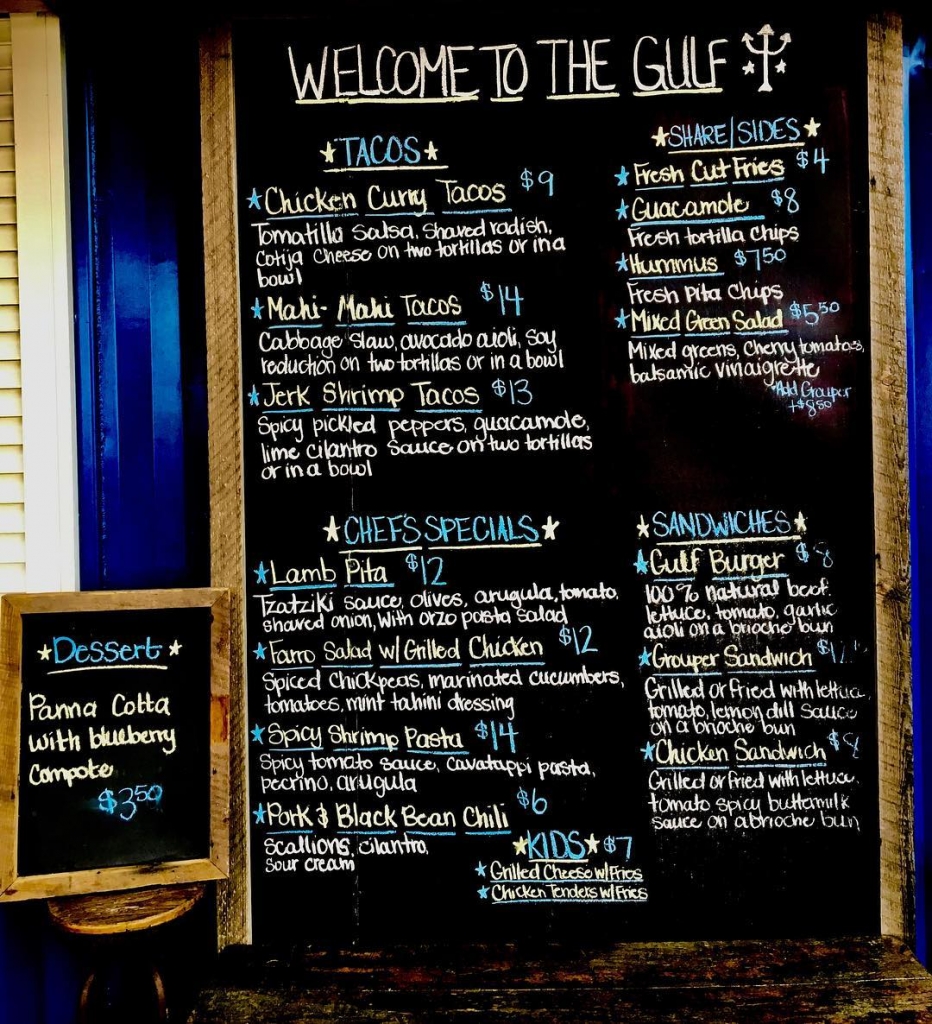 WELCOME TO THE GULF
★TACOS★
★Chicken Curry Tacos $9
Tomatillo Salsa, Shaved radish,
Cotija Cheese on two tortillas or in a
bowl
★Mahi-Mahi Tacos $14
Cabbage Slaw, avocado aioli, soy
reduction on two tortillas or in a bowl
★Jerk Shrimp Tacos $13
Spicy pickled peppers, guacamole,
lime cilantro sauce on two tortillas
or in a bowl
★SHARE/SIDES★
★Fresh Cut Fries $4
★Guacamole $8
Fresh tortilla chips
★Hummus $7.50
Fresh pita chips
★Mixed Green Salad $5.50
Mixed greens, cherry tomatoes,
balsamic vinaigrette
*Add Grouper
+$8.50
★CHEF'S SPECIALS★
★Lamb Pita $12
Tzatziki sauce, olives, arugula, tomato,
shaved onion, with orzo pasta salad
★Farro Salad w/Grilled Chicken $12
Spiced Chickpeas, marinated cucumbers,
tomatoes, mint tahini dressing
★Spicy Shrimp Pasta $14
Spicy tomato sauce, cavatappi pasta,
pecrino, arugula
★Pork & Black Bean Chili $6
Scallions, cilantro,
sour cream
★KIDS★ $7
★Grilled Cheese w/Fries
★Chicken Tenders w/Fries
★SANDWICHES★
★Gulf Burger $8
100% natural beef,
lettuce, tomato, garlic
aioli on a brioche bun
★Grouper Sandwich
Grilled or fried with lettuce,
tomato, lemon dill sauce
on a brioche bun
★Chicken Sandwich $8
Grilled or fried with lettuce,
tomato spicy buttermilk
sauce on a brioche bun
★Dessert★
Panna Cotta
with blueberry
compote
$3.50